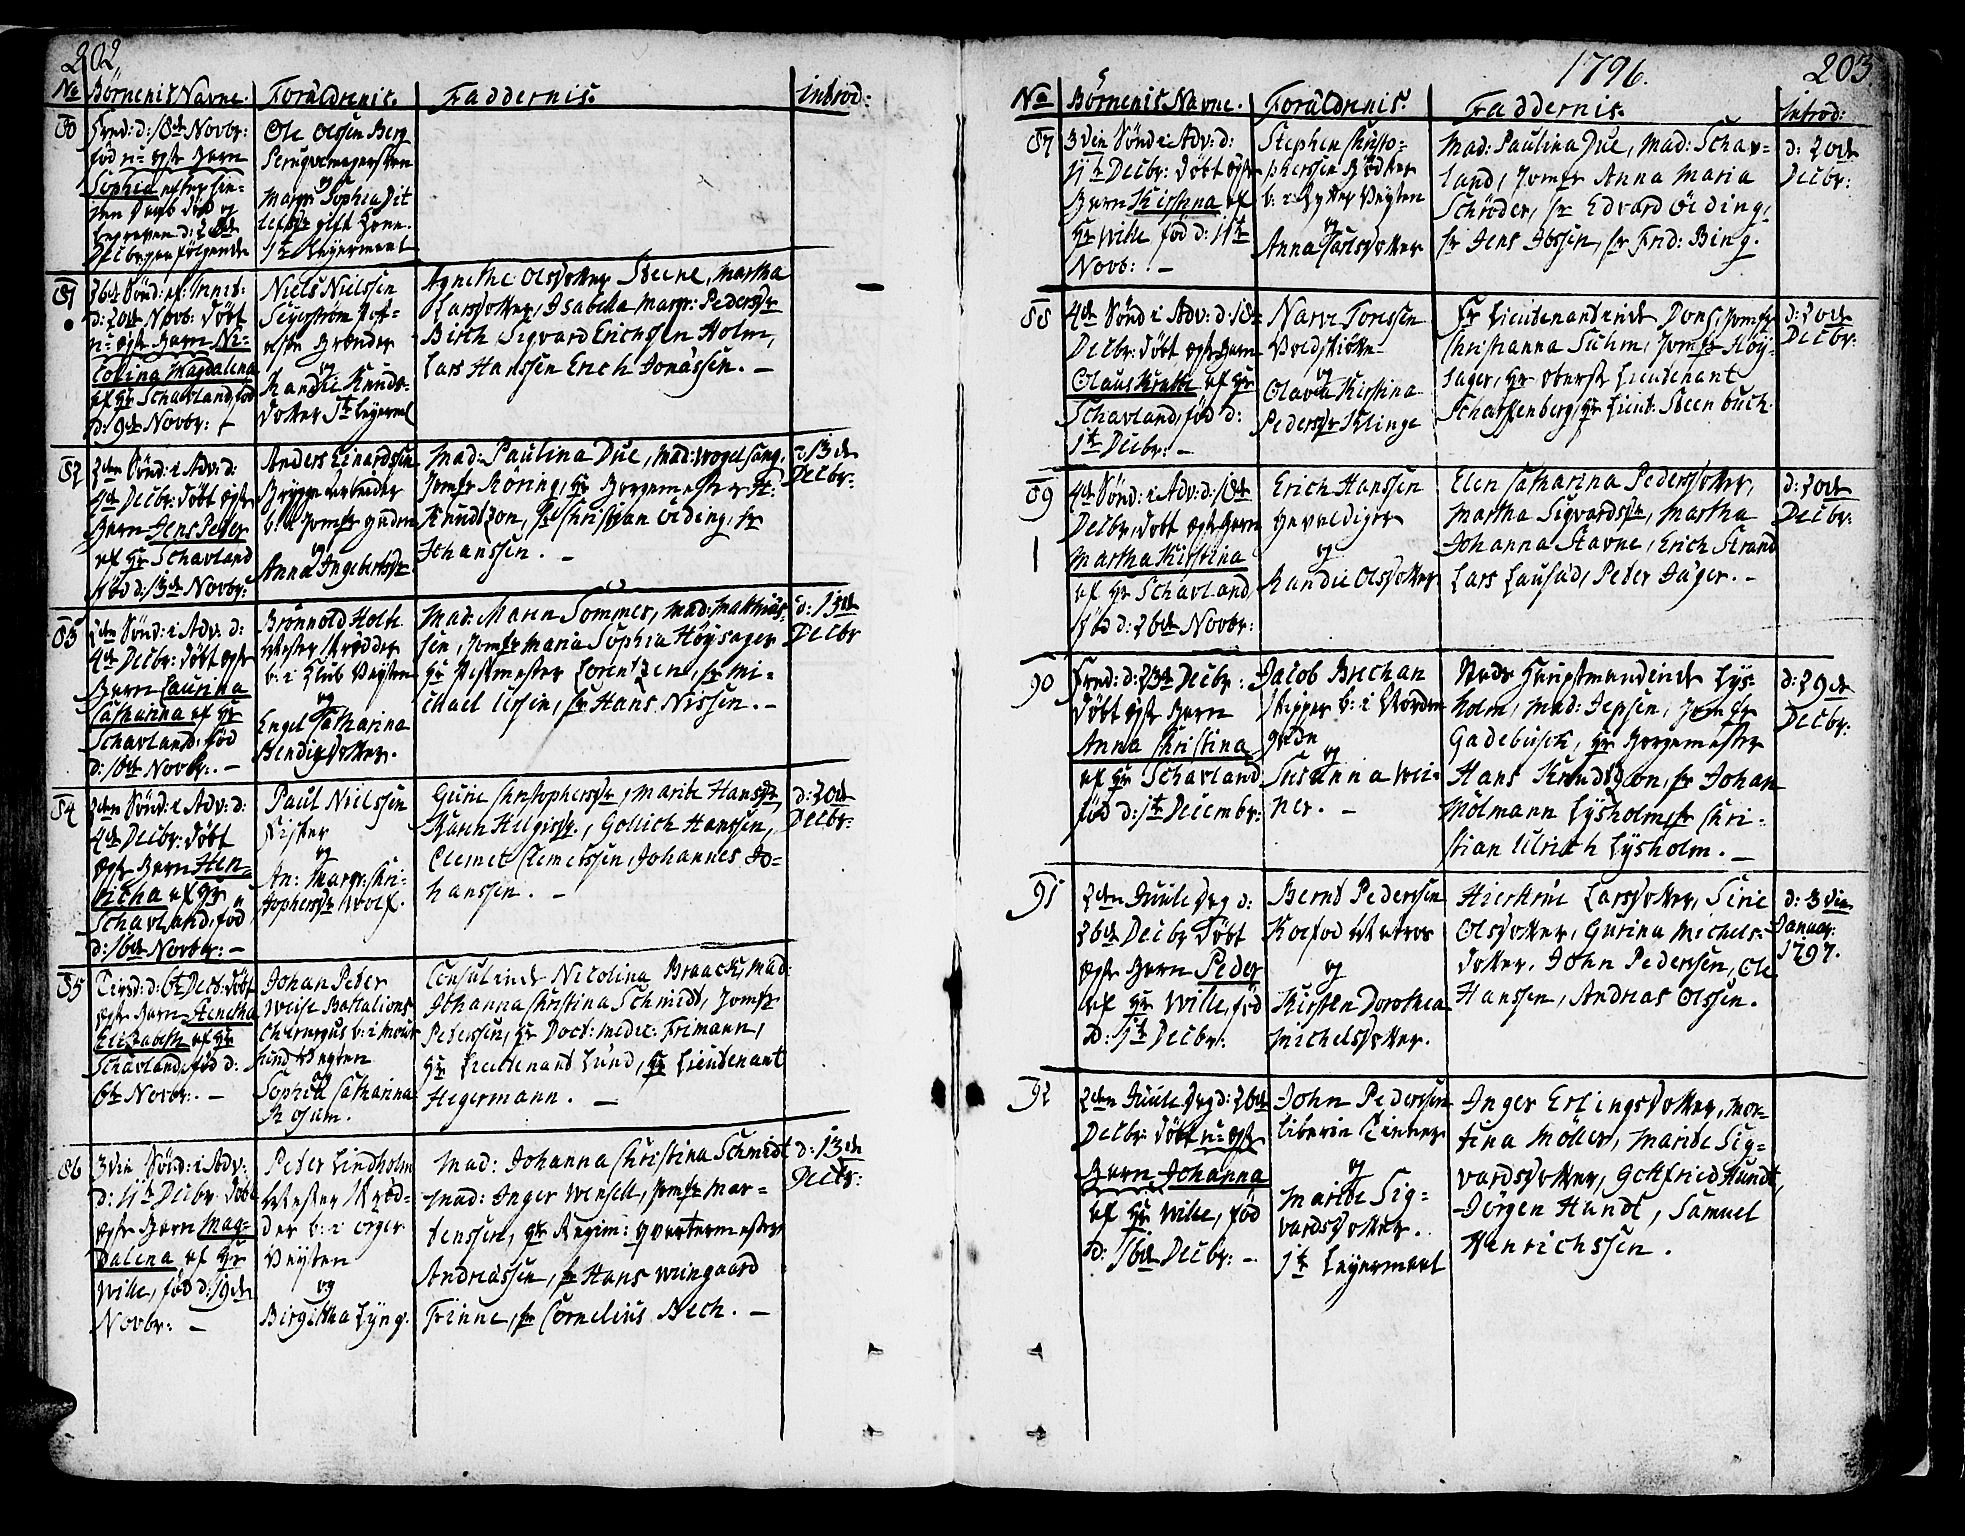 202.
No Börnenis Navne. Forældrenis. Faddernis. introd:
80
Fred: d: 18de Novbr:
fød u= ægte Barn
Sophia efter
den Daab død og
begraven d: 20de
Decbr
Ole Olssen Berg
og
Margr: Sophia Dit
1te Leyermaal
81
26de Sønd: ef: Trinit:
d: 20de Novb: døbt
u= ægte Barn Ni=
colina Magdalena
af Hr Schavland, fød
d: 9de Novbr:
Niels Nielssen
og
Randie Knuds=
dotter 1te Leyerm
Agnethe Olsdotter Steene, Martha
Larsdotter, Isabella Margr: Pedersdr
Birch, Sigvard Erichsen Holm,
Lars Hanssen, Erich Jonassen. —
82
2den Sønd: i Adv: d:
4de Decbr: døbt ægte
Barn Jens Peder
af Hr Schavland
fød d: 13de Novbr:
Anders Einardssen
Brygge
b: i Jomfr gaden
og
Anna Ingebertsdr
Mad: Paulina Due, Mad: Vogelsang,
Jomfr Röring, Hr Borgemester H:
Knudtzon, Sr Christian Öiding, Sr
Johanssen. —
d: 13de
Decbr:
83
2den Sønd: i Adv: d:
4de Decbr: døbt ægte
Barn Laurina
Catharina af Hr
Schavland, fød
d: 10de Novbr: —
Brönnold Holte
Mester Skrædder
b: i Klub Veyten
og
Engel Catharina
Bendixdotter.
Mad: Maren Sommer, Mad: Mathias=
sen, Jomfr Maria Sophia Höysager
Hr Postmester Lorentzen, Sr Mi=
chael Ursin, Sr Hans Nissen. —
d: 13de
Decbr
84
2den Sønd: i Adv: d:
4de Decbr: døbt
ægte Barn Hen=
richa af Hr
Schavland, fød
d: 16de Novbr: —
Paul Nielssen
Fisker
og
An: Margr: Chri=
stophersdr Wolf.
Christophersdr, Marite Hansdr,
Karen Helgesdr, Gollich Hanssen,
Clemet Clemetssen, Johannes Jo=
hanssen. —
d: 20de
Decbr:
85
Tirsd: d: 6te Decb: døbt
ægte Barn Agnetha
Elizabeth af Hr
Schavland, fød d:
6te Novbr: —
Johan Peter
Weise Battalions
Chirurgus b: i
Veyten
og
Sophia Catharina
Rosum.
Consulinde Nicolina Braack, Mad:
Johanna Christina Schmidt, Jomfr
Pederssen, Hr Doct: medic: Frimann,
Hr Lieutenant Lund, Hr Lieutenant
Hegermann. —
86
3die Sønd: i Adv:
d: 11te Decbr døbt
ægte Barn Mag=
dalena af Hr
Wille, fød d: 19de
Novbr: —
Peter Lindholm
Mester Skræd=
der b: i Orger
Veyten
og
Birgitha Lyng.
Mad: Johanna Christina Schmidt
Mad: Inger Wensell, Jomfr Mar=
tenssen, Hr Regim: qvartermester
Andreassen, Sr Hans Wingaard
Finne, Sr Cornelius Bech. —
d: 13de
Decbr:
1796. 203
No Börnenis Navne. Forældrenis. Faddernis. introd:
87
3die Sønd: i Adv: d:
11te Decbr: døbt ægte
Barn Kistina af
Hr Wille fød d: 11te
Novb: —
Stephen Christo=
pherssen Rödker
b: i Rytter Veyten
og
Anna Carlsdotter
Mad: Paulina Due, Mad: Schav=
land, Jomfr Anna Maria
Schröder, Sr Edvard Öiding,
Sr Jens Ibssen, Sr Frid: Bing.
d: 20de
Decbr:
88
4de Sønd: i Adv: d: 18de
Decbr: døbt ægte Barn
Olaus Krabbe af Hr
Schavland, fød d:
1te Decbr: —
Narve Toressen
og
Olava Kistina
Pedersdr Klinge
Fr Lieutenantinde Dons, Jomfr
Christianna Suhm, Jomfr Höy=
sager, Hr Oberst Lieutenant
Scharffenberg, Hr Lieut: Steenbuch.
d: 20de
Decbr:
89
4de Sønd: i Adv: d: 18de
Decbr: døbt ægte Barn
Martha Kirstina
af Hr Schavland
fød d: 26de Novbr:
Erich Hanssen
Geveldiger
og
Randie Olsdotter
Elen Catharina Pedersdotter,
Martha Sigvardsdr, Martha
Johanna Stavne, Erich Strand
Lars Lausud, Peter Jäger. —
d: 20de
Decbr:
90
Fred: d: 23de Decbr:
døbt ægte Barn
Anna Christina
af Hr Schavland
fød d: 1te Decembr:
Jacob Brechan
Skipper b: i Nordre
gade
og
Susanna Wei=
ner. —
Mad: Hauptmandinde Lys=
holm, Mad: Jepsen, Jomfr
Gadebusch, Hr Borgemester
Hans Knudtzon, Sr Johan
Mölmann Lysholm, Sr Chri=
stian Ulrich Lysholm. —
d: 29de
Decbr:
91
2den Juule Dag d:
26de Decbr døbt
ægte Barn Peder
af Hr Wille, fød
d: 1te Decbr:
Bernt Pederssen
Koefod Matros
og
Kirsten Dorothea
Michelsdotter.
Larsdotter, Sirie
Olsdotter, Gurina Michels=
dotter, John Pederssen, Ole
Hanssen, Andreas Olssen.
d: 3die
Januar:
1797.
92
2den Juule Dag d: 26de
Decbr: døbt u= ægte
Barn Johanna
af Hr Wille, fød
d: 16de Decbr: —
John Pederssen
og
Marite Sig=
vardsdotter.
1te Leyermaal
Inger Erlingsdotter, Mor=
tina Möller, Marite Sig=
vardsdotter, Gottfried Hundt,
Jörgen Hundt, Samuel
Henrichssen.